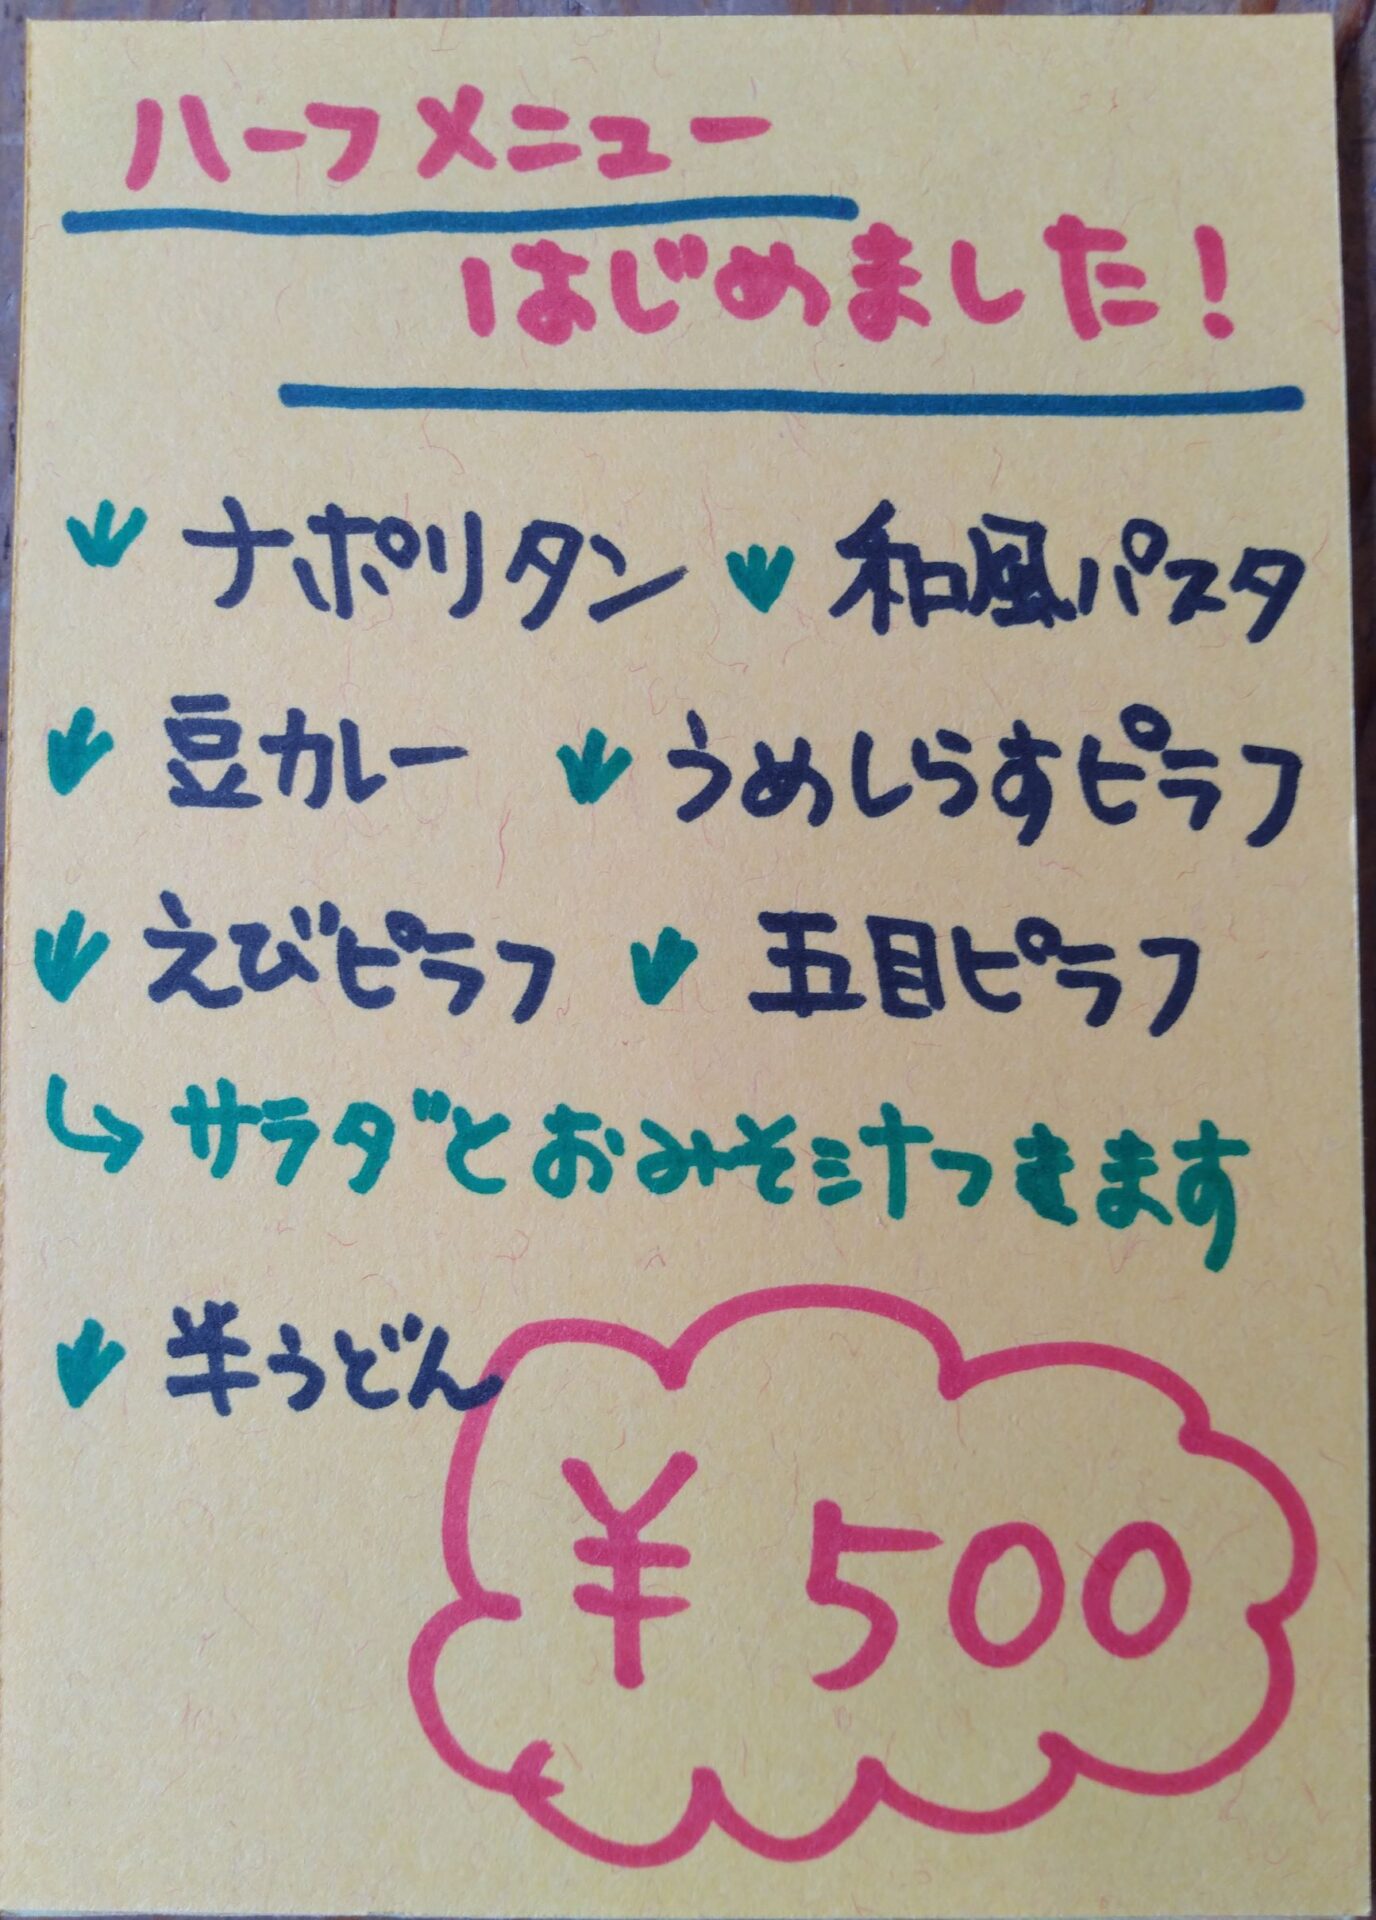 ハーフメニュー
はじめました！
ナポリタン 和風パスタ
豆カレー うめしらすピラフ
えびピラフ 五目ピラフ
↳ サラダとおみそ汁つきます
半うどん
¥500